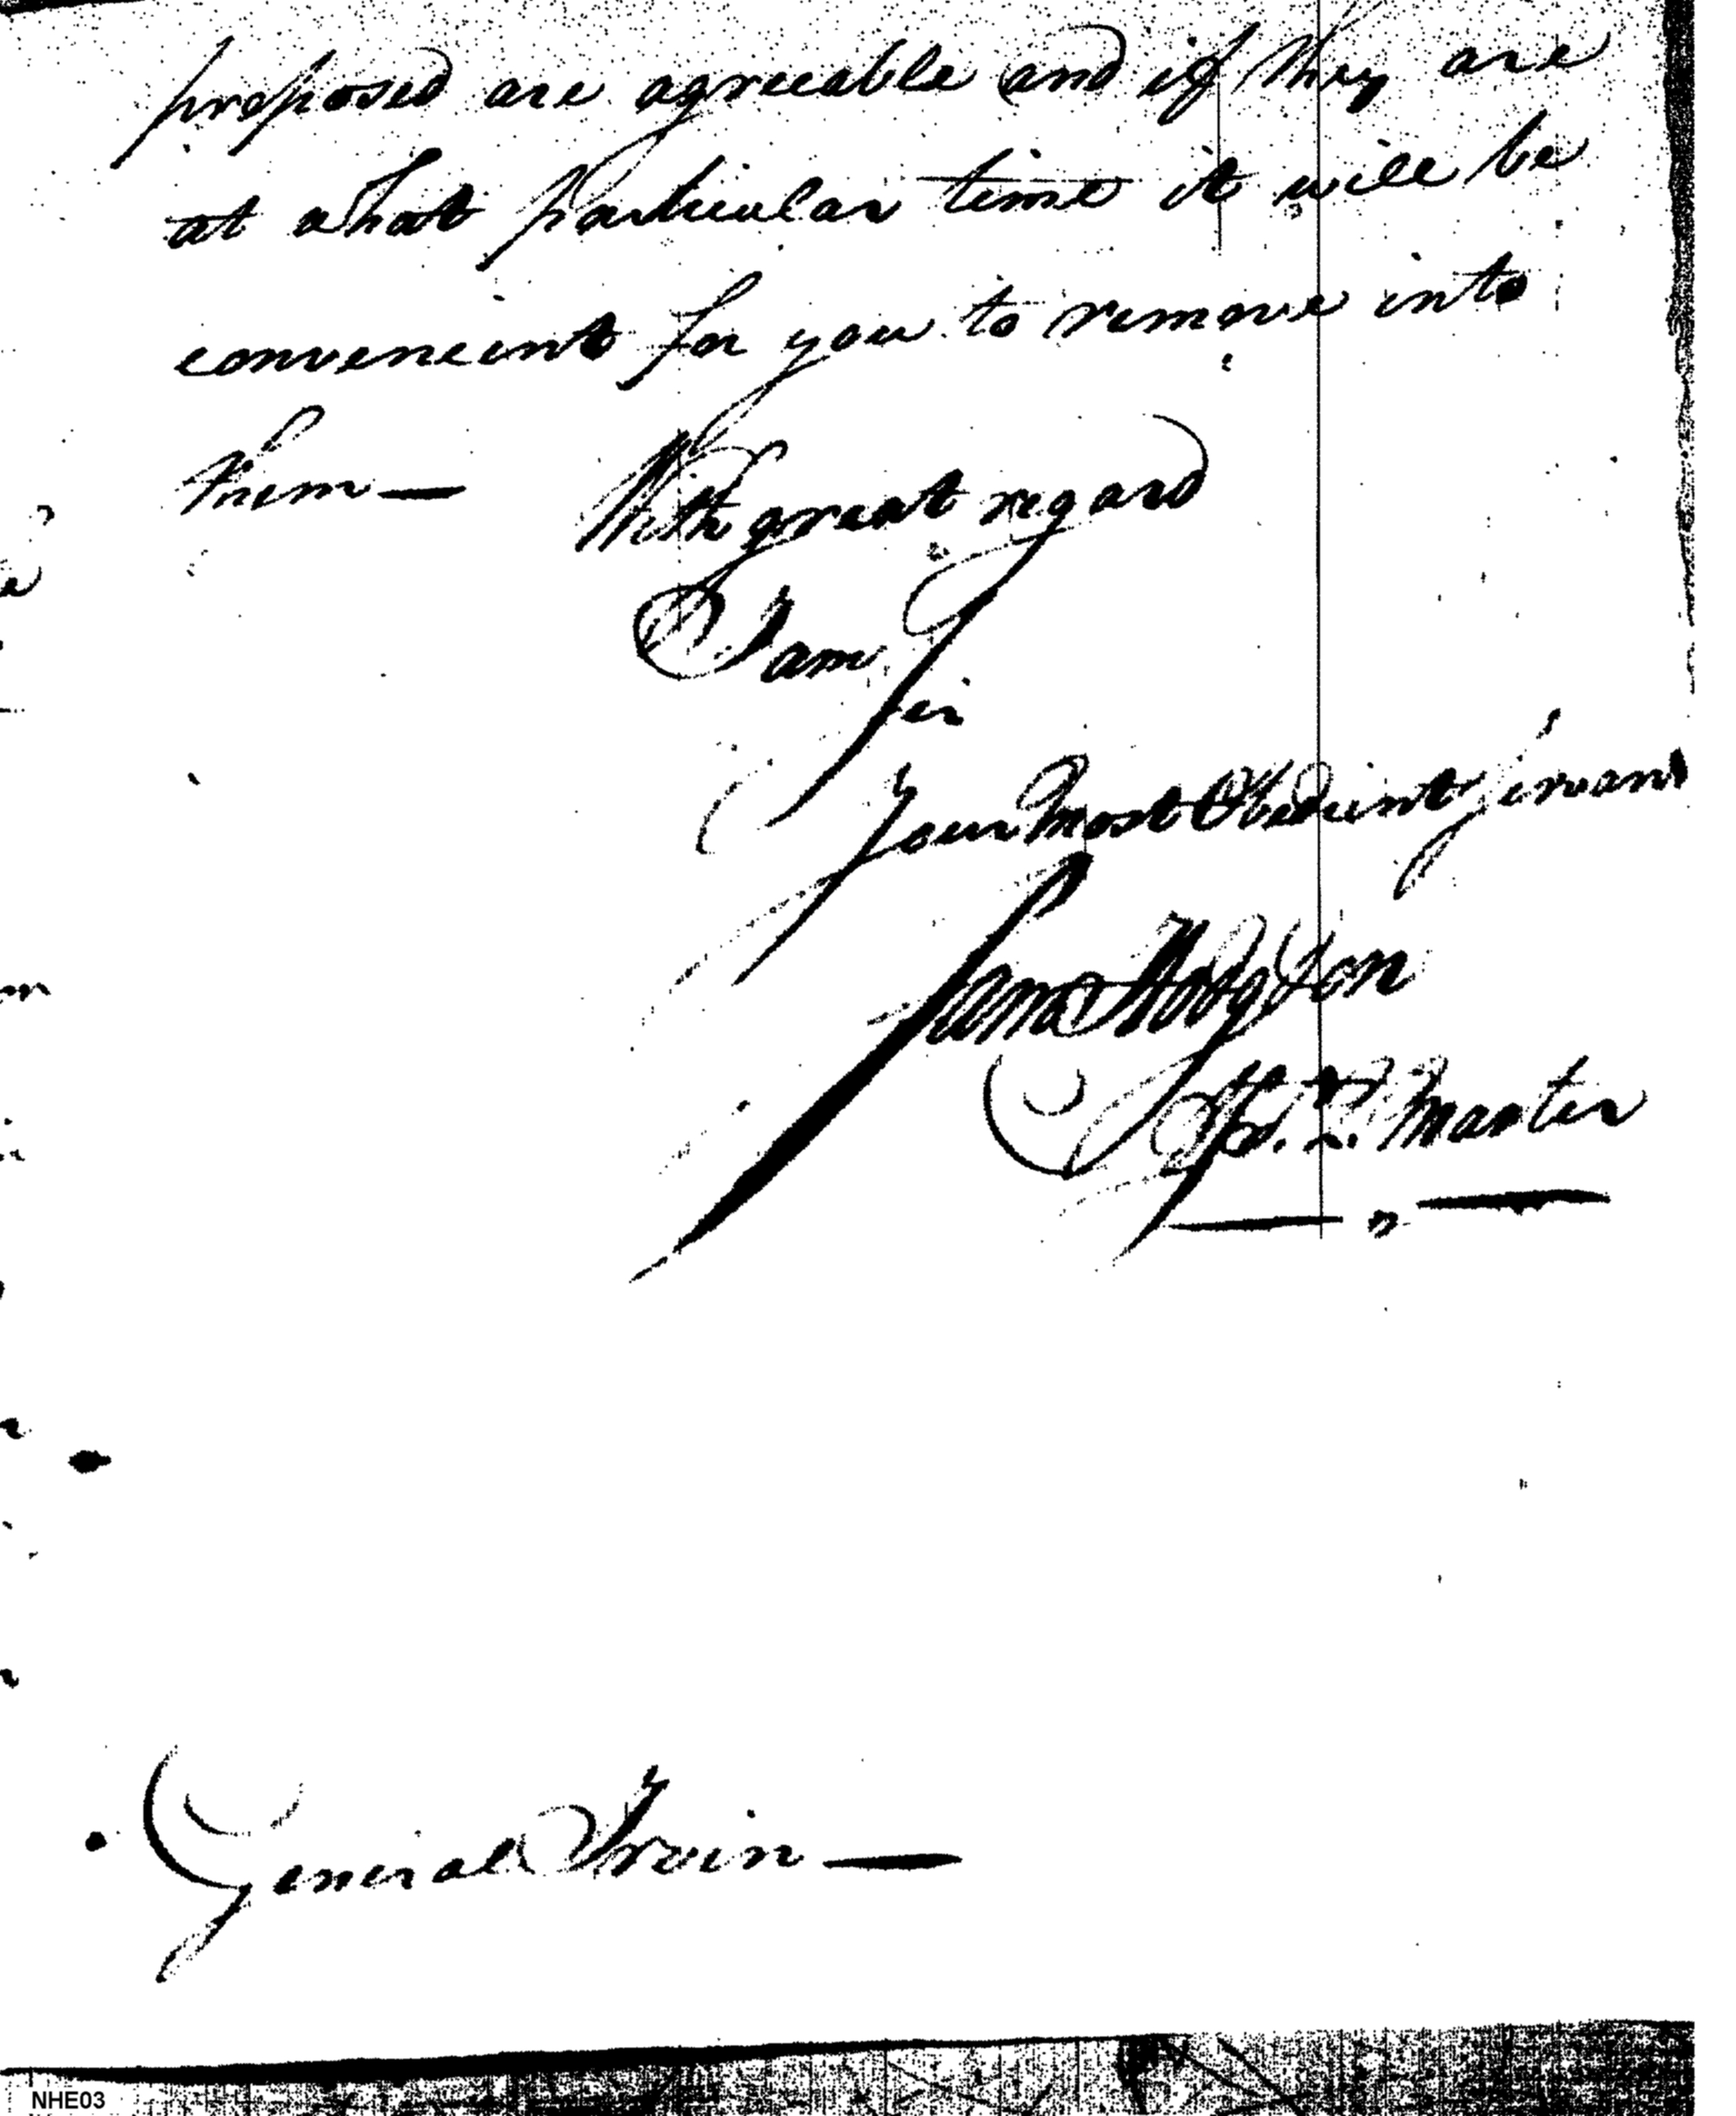 proposed are agreeable and if they are
at what particular time it will be
conveneint for you to remove into
them—
With great regard
I am
Sir
Your most Obedient Servant
Sam Hodgdon
Q. Master
General Irvin—
NHE03